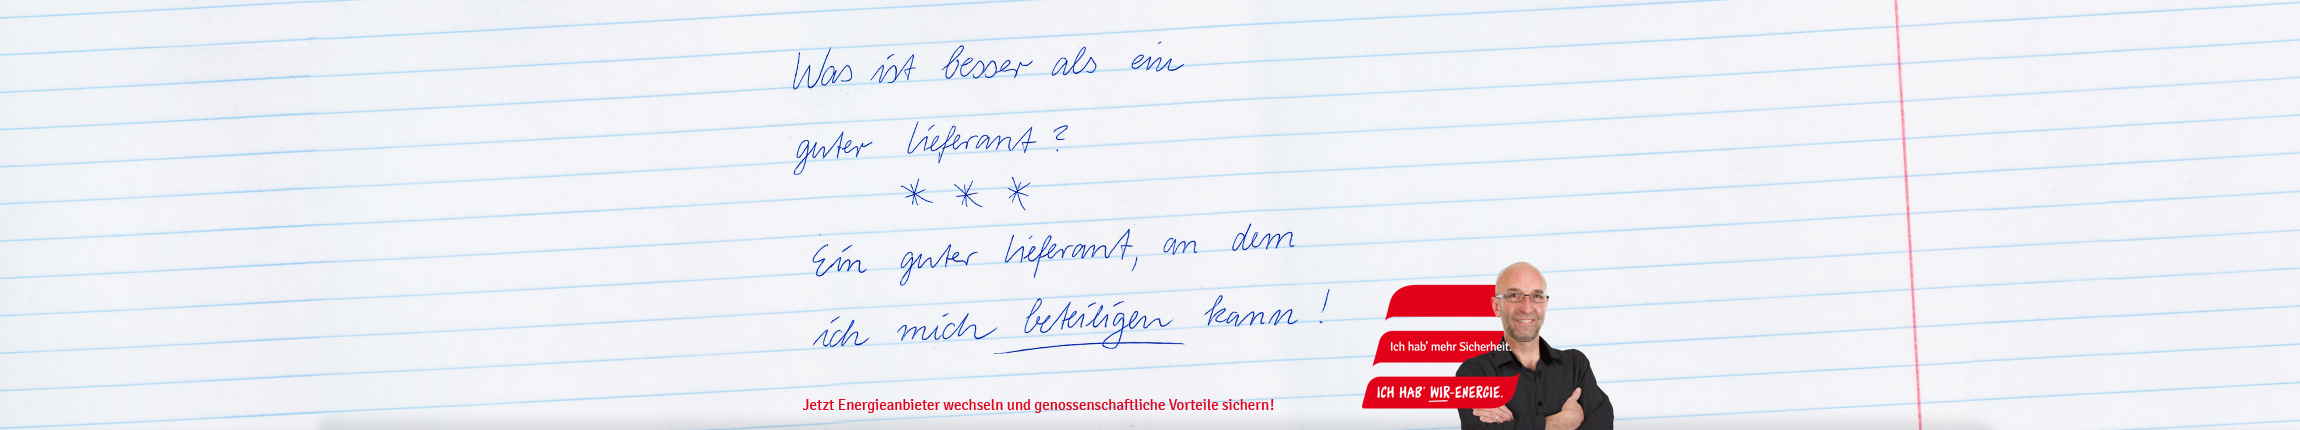 Was ist besser als ein
guter Lieferant?
* * *
Ein guter Lieferant, an dem
ich mich beteiligen kann!
Ich hab' mehr Sicherheit.
ICH HAB' WIR-ENERGIE.
Jetzt Energieanbieter wechseln und genossenschaftliche Vorteile sichern!